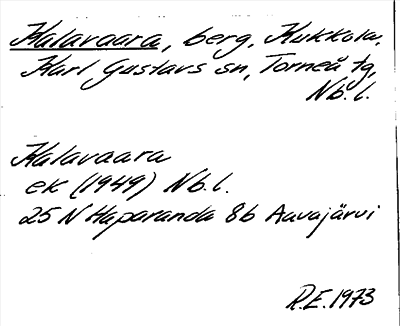 Kalavaara, berg, Kukkola,
Karl Gustavs sn, Torneå tg,
Nb. l.
Kalavaara
ek (1949) Nb. l.
25 N Haparanda 8b Aavajärvi
R.E. 1973